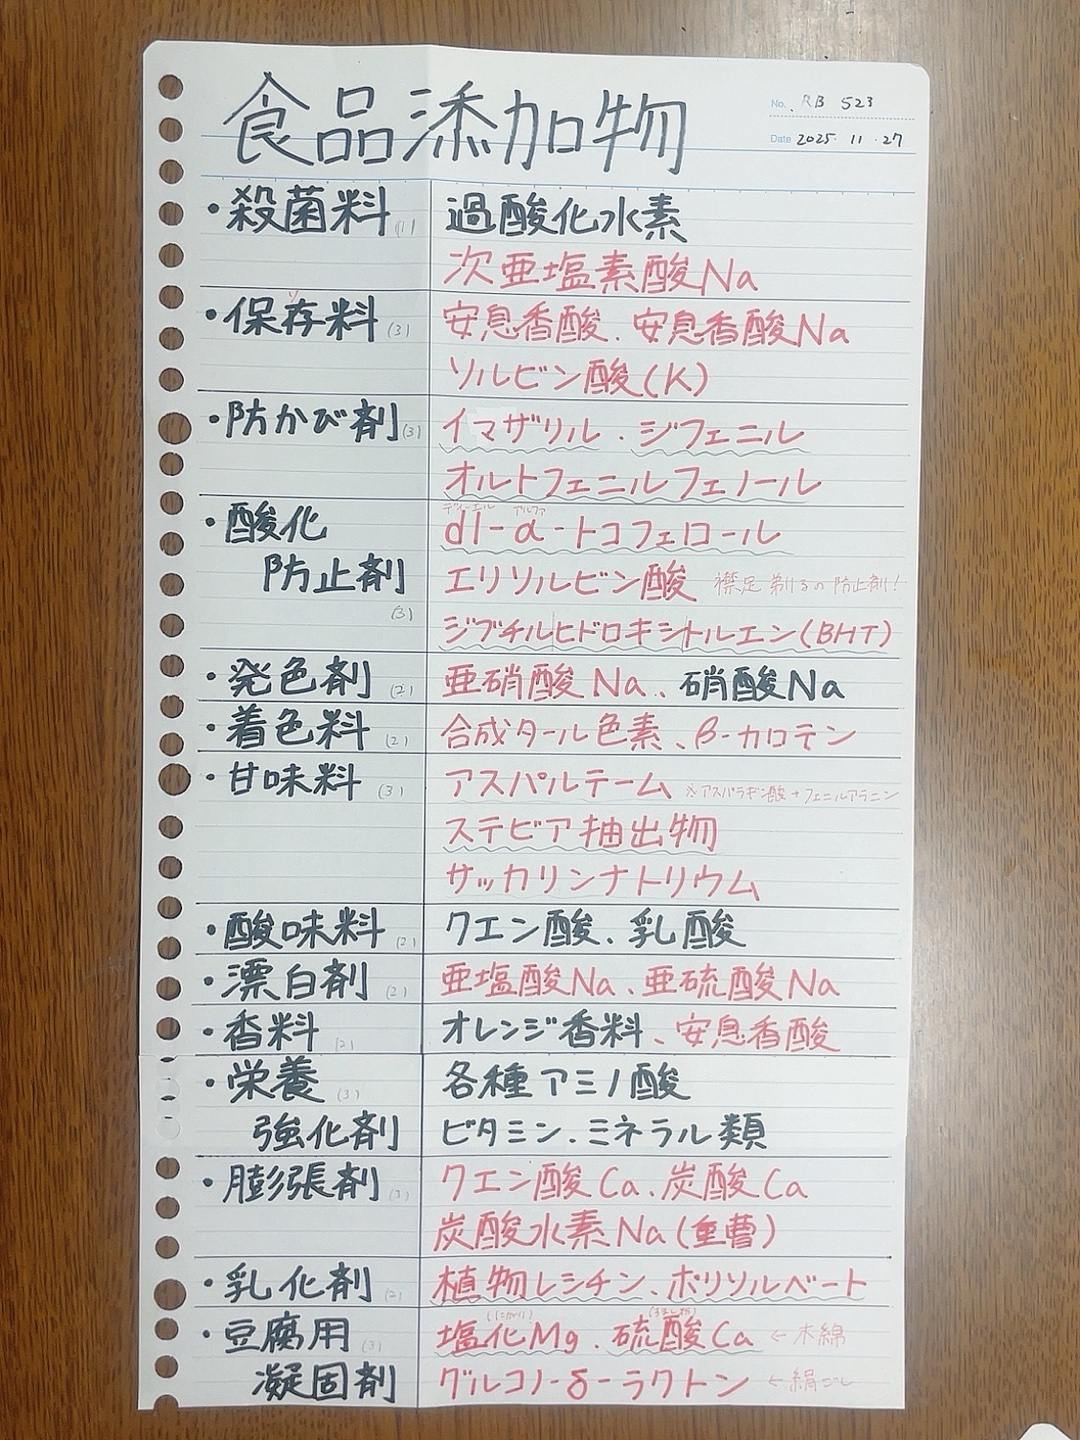 食品添加物
No. RB 523
Date 2025. 11. 27
・殺菌料 (1) 過酸化水素
次亜塩素酸Na
ソ
・保存料 (3) 安息香酸、安息香酸Na
ソルビン酸(K)
・防かび剤 (3) イマザリル・ジフェニル
オルトフェニルフェノール
ディーエル アルファ
・酸化 dl-α-トコフェロール
防止剤 エリソルビン酸 襟足剃るの防止剤!
(3) ジブチルヒドロキシトルエン(BHT)
・発色剤 (2) 亜硝酸Na、硝酸Na
・着色料 (2) 合成タール色素、β-カロテン
・甘味料 (3) アスパルテーム ※アスパラギン酸+フェニルアラニン
ステビア抽出物
サッカリンナトリウム
・酸味料 (2) クエン酸、乳酸
・漂白剤 (2) 亜塩酸Na、亜硫酸Na
・香料 (2) オレンジ香料、安息香酸
・栄養 (3) 各種アミノ酸
強化剤 ビタミン、ミネラル類
・膨張剤 (3) クエン酸Ca、炭酸Ca
炭酸水素Na(重曹)
・乳化剤 (2) 植物レシチン、ポリソルベート
(にがり)
・豆腐用 (3) 塩化Mg、硫酸Ca ←木綿
凝固剤 グルコノ-δ-ラクトン ←絹ごし